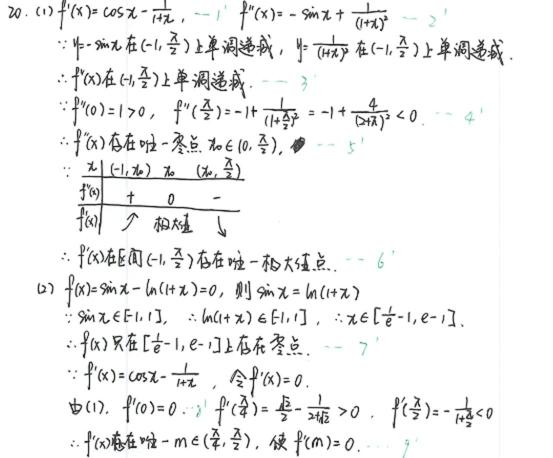 20. (1) f'(x)=cosx-1/(1+x), --- 1' f''(x)=-sinx+1/(1+x)² -- 2'
∵ y=-sinx在(-1,π/2)上单调递减, y=1/(1+x)²在(-1,π/2)上单调递减.
∴ f''(x)在(-1,π/2)上单调递减. --- 3'
∵ f''(0)=1>0, f''(π/2)=-1+1/(1+π/2)²=-1+4/(2+π)²<0. --- 4'
∴ f''(x)存在唯一零点 x₀∈(0,π/2), --- 5'
∵ x (-1,x₀) x₀ (x₀,π/2)
f''(x) + 0 -
f'(x) ↗ 极大值 ↘
∴ f'(x)在区间(-1,π/2)存在唯一极大值点. --- 6'
(2) f(x)=sinx-ln(1+x)=0, 则sinx=ln(1+x)
∵ sinx∈[-1,1], ∴ ln(1+x)∈[-1,1], ∴ x∈[1/e-1,e-1].
∴ f(x)只在[1/e-1,e-1]上存在零点. --- 7'
∵ f'(x)=cosx-1/(1+x), 令f'(x)=0.
由(1), f'(0)=0. --8' f'(π/4)=√2/2-1/(1+π/4)>0, f'(π/2)=-1/(1+π/2)<0
∴ f'(x)存在唯一m∈(π/4,π/2), 使f'(m)=0. ---- 9'